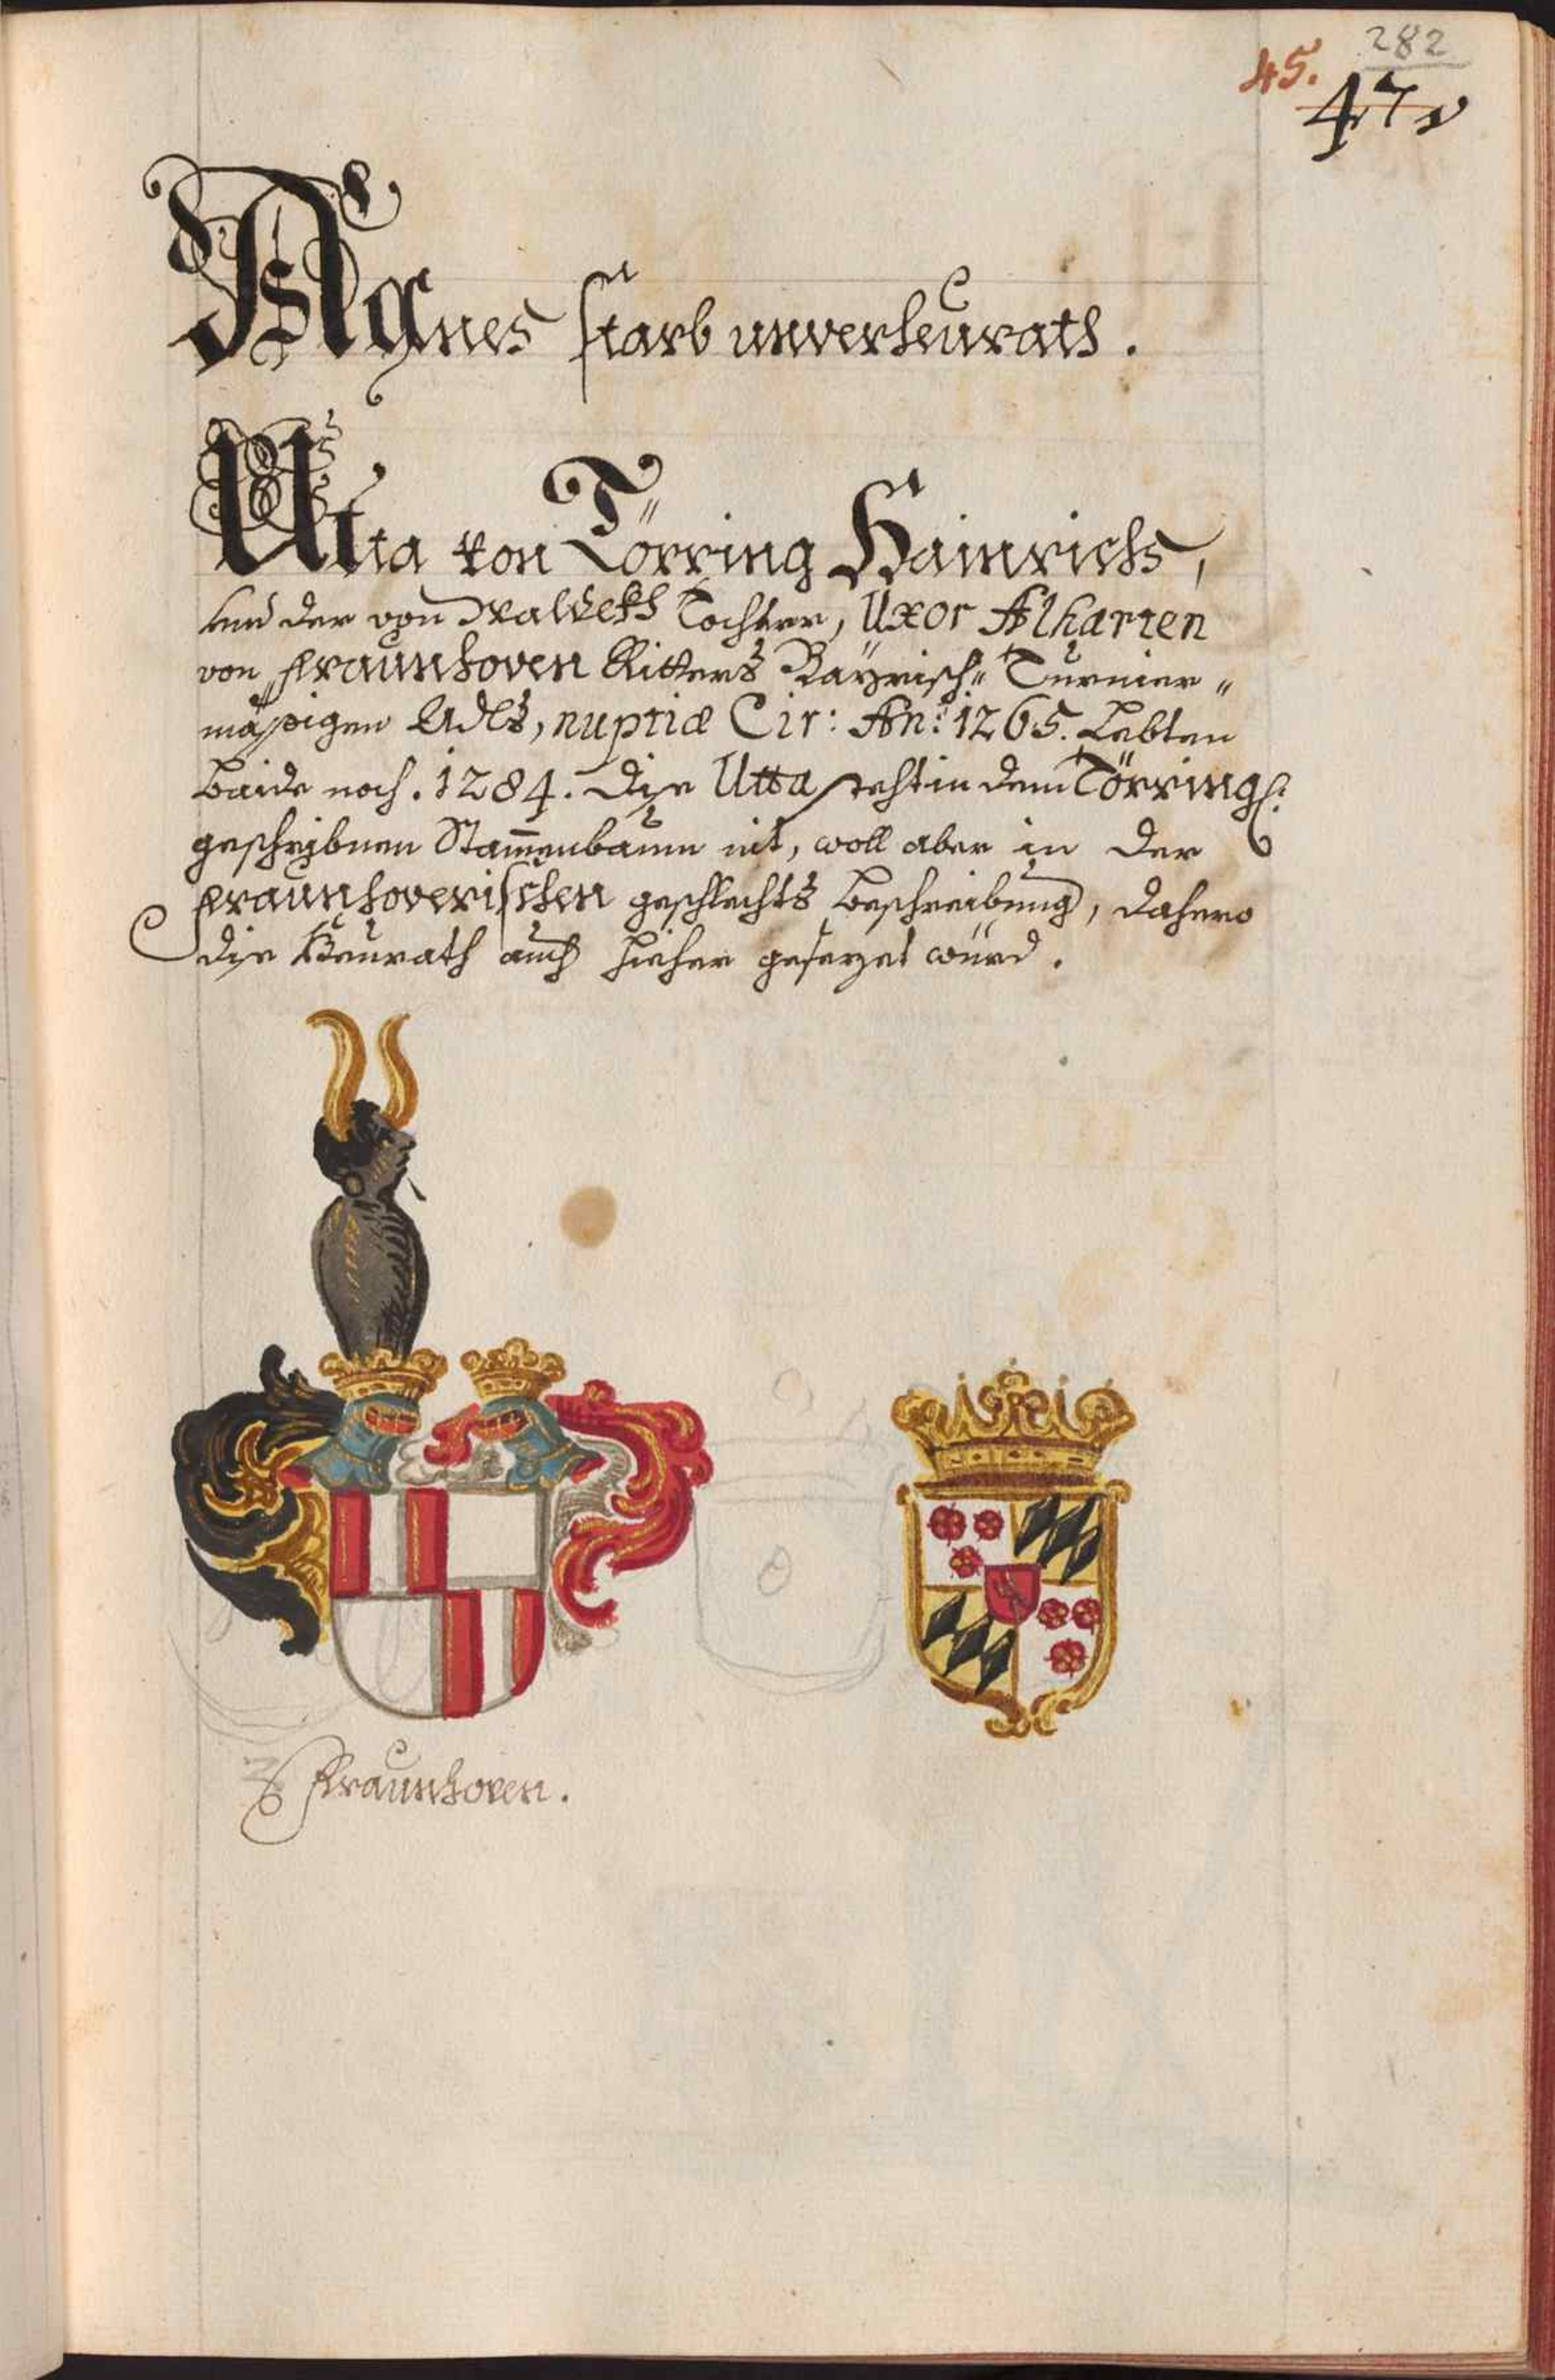 282
45.
47
Agnes starb unverheurath.
Utta von Törring Hainrichs,
und der von Waldekh Tochter, Uxor Alharten
von Fraunhoven Ritters Bayrisch„ Turnier„
mässigen Adls, nuptiæ Cir: An: 1265. Lebten
baide noch. 1284. Dise Utta steht in dem Törring:
geschribnen Stam̄enbaum nit, woll aber in der
Fraunhoverischen geschlechts beschreibung, dahero
dise Heurath auch hieher gesezet würd.
Fraunhoven.